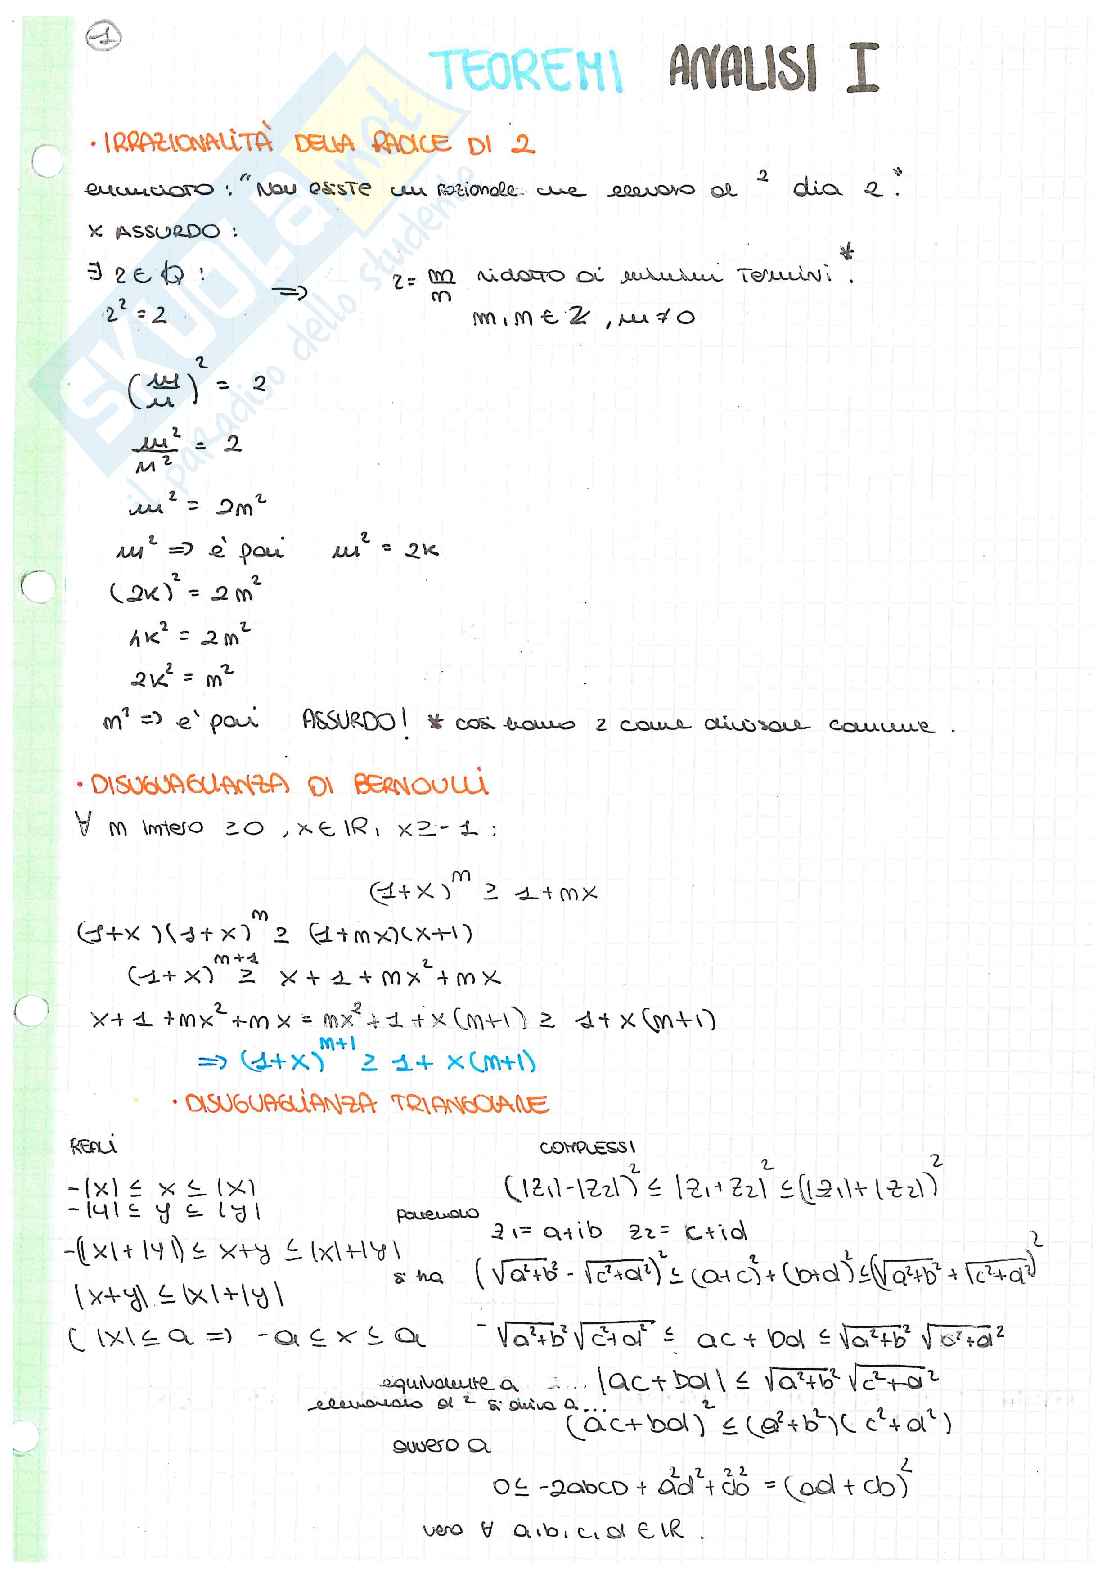 1
TEOREMI ANALISI I
• IRRAZIONALITÀ DELLA RADICE DI 2
enunciato: "Non esiste un razionale che elevato al ² dia 2".
x ASSURDO:
∃ r ∈ Q : ⇒ r = m/n ridotto ai minimi termini *.
r² = 2 m, n ∈ Z, n ≠ 0
(m/n)² = 2
m²/n² = 2
m² = 2n²
m² ⇒ è pari m² = 2k
(2k)² = 2n²
4k² = 2n²
2k² = n²
n² ⇒ è pari ASSURDO! * così hanno 2 come divisore comune.
• DISUGUAGLIANZA DI BERNOULLI
∀ n intero ≥0, x ∈ IR, x ≥ -1 :
(1+x)ⁿ ≥ 1+nx
(1+x)(1+x)ⁿ ≥ (1+nx)(x+1)
(1+x)ⁿ⁺¹ ≥ x+1+nx²+nx
x+1+nx²+nx = nx²+1+x(n+1) ≥ 1+x(n+1)
⇒ (1+x)ⁿ⁺¹ ≥ 1+x(n+1)
• DISUGUAGLIANZA TRIANGOLARE
REALI
-|x| ≤ x ≤ |x|
-|y| ≤ y ≤ |y|
-(|x|+|y|) ≤ x+y ≤ |x|+|y|
|x+y| ≤ |x|+|y|
( |x| ≤ a ⇒ -a ≤ x ≤ a
COMPLESSI
(|z₁|-|z₂|)² ≤ |z₁+z₂|² ≤ (|z₁|+|z₂|)²
ponendo z₁ = a+ib z₂ = c+id
si ha (√a²+b² - √c²+d²)² ≤ (a+c)²+(b+d)² ≤ (√a²+b² + √c²+d²)²
-√a²+b² √c²+d² ≤ ac+bd ≤ √a²+b² √c²+d²
equivalente a ... |ac+bd| ≤ √a²+b² √c²+d²
elevando al ² si arriva a...
(ac+bd)² ≤ (a²+b²)(c²+d²)
ovvero a
0 ≤ -2abcd + a²d² + c²b² = (ad+cb)²
vero ∀ a,b,c,d ∈ IR.
SKUOLA.net
il paradiso dello studente